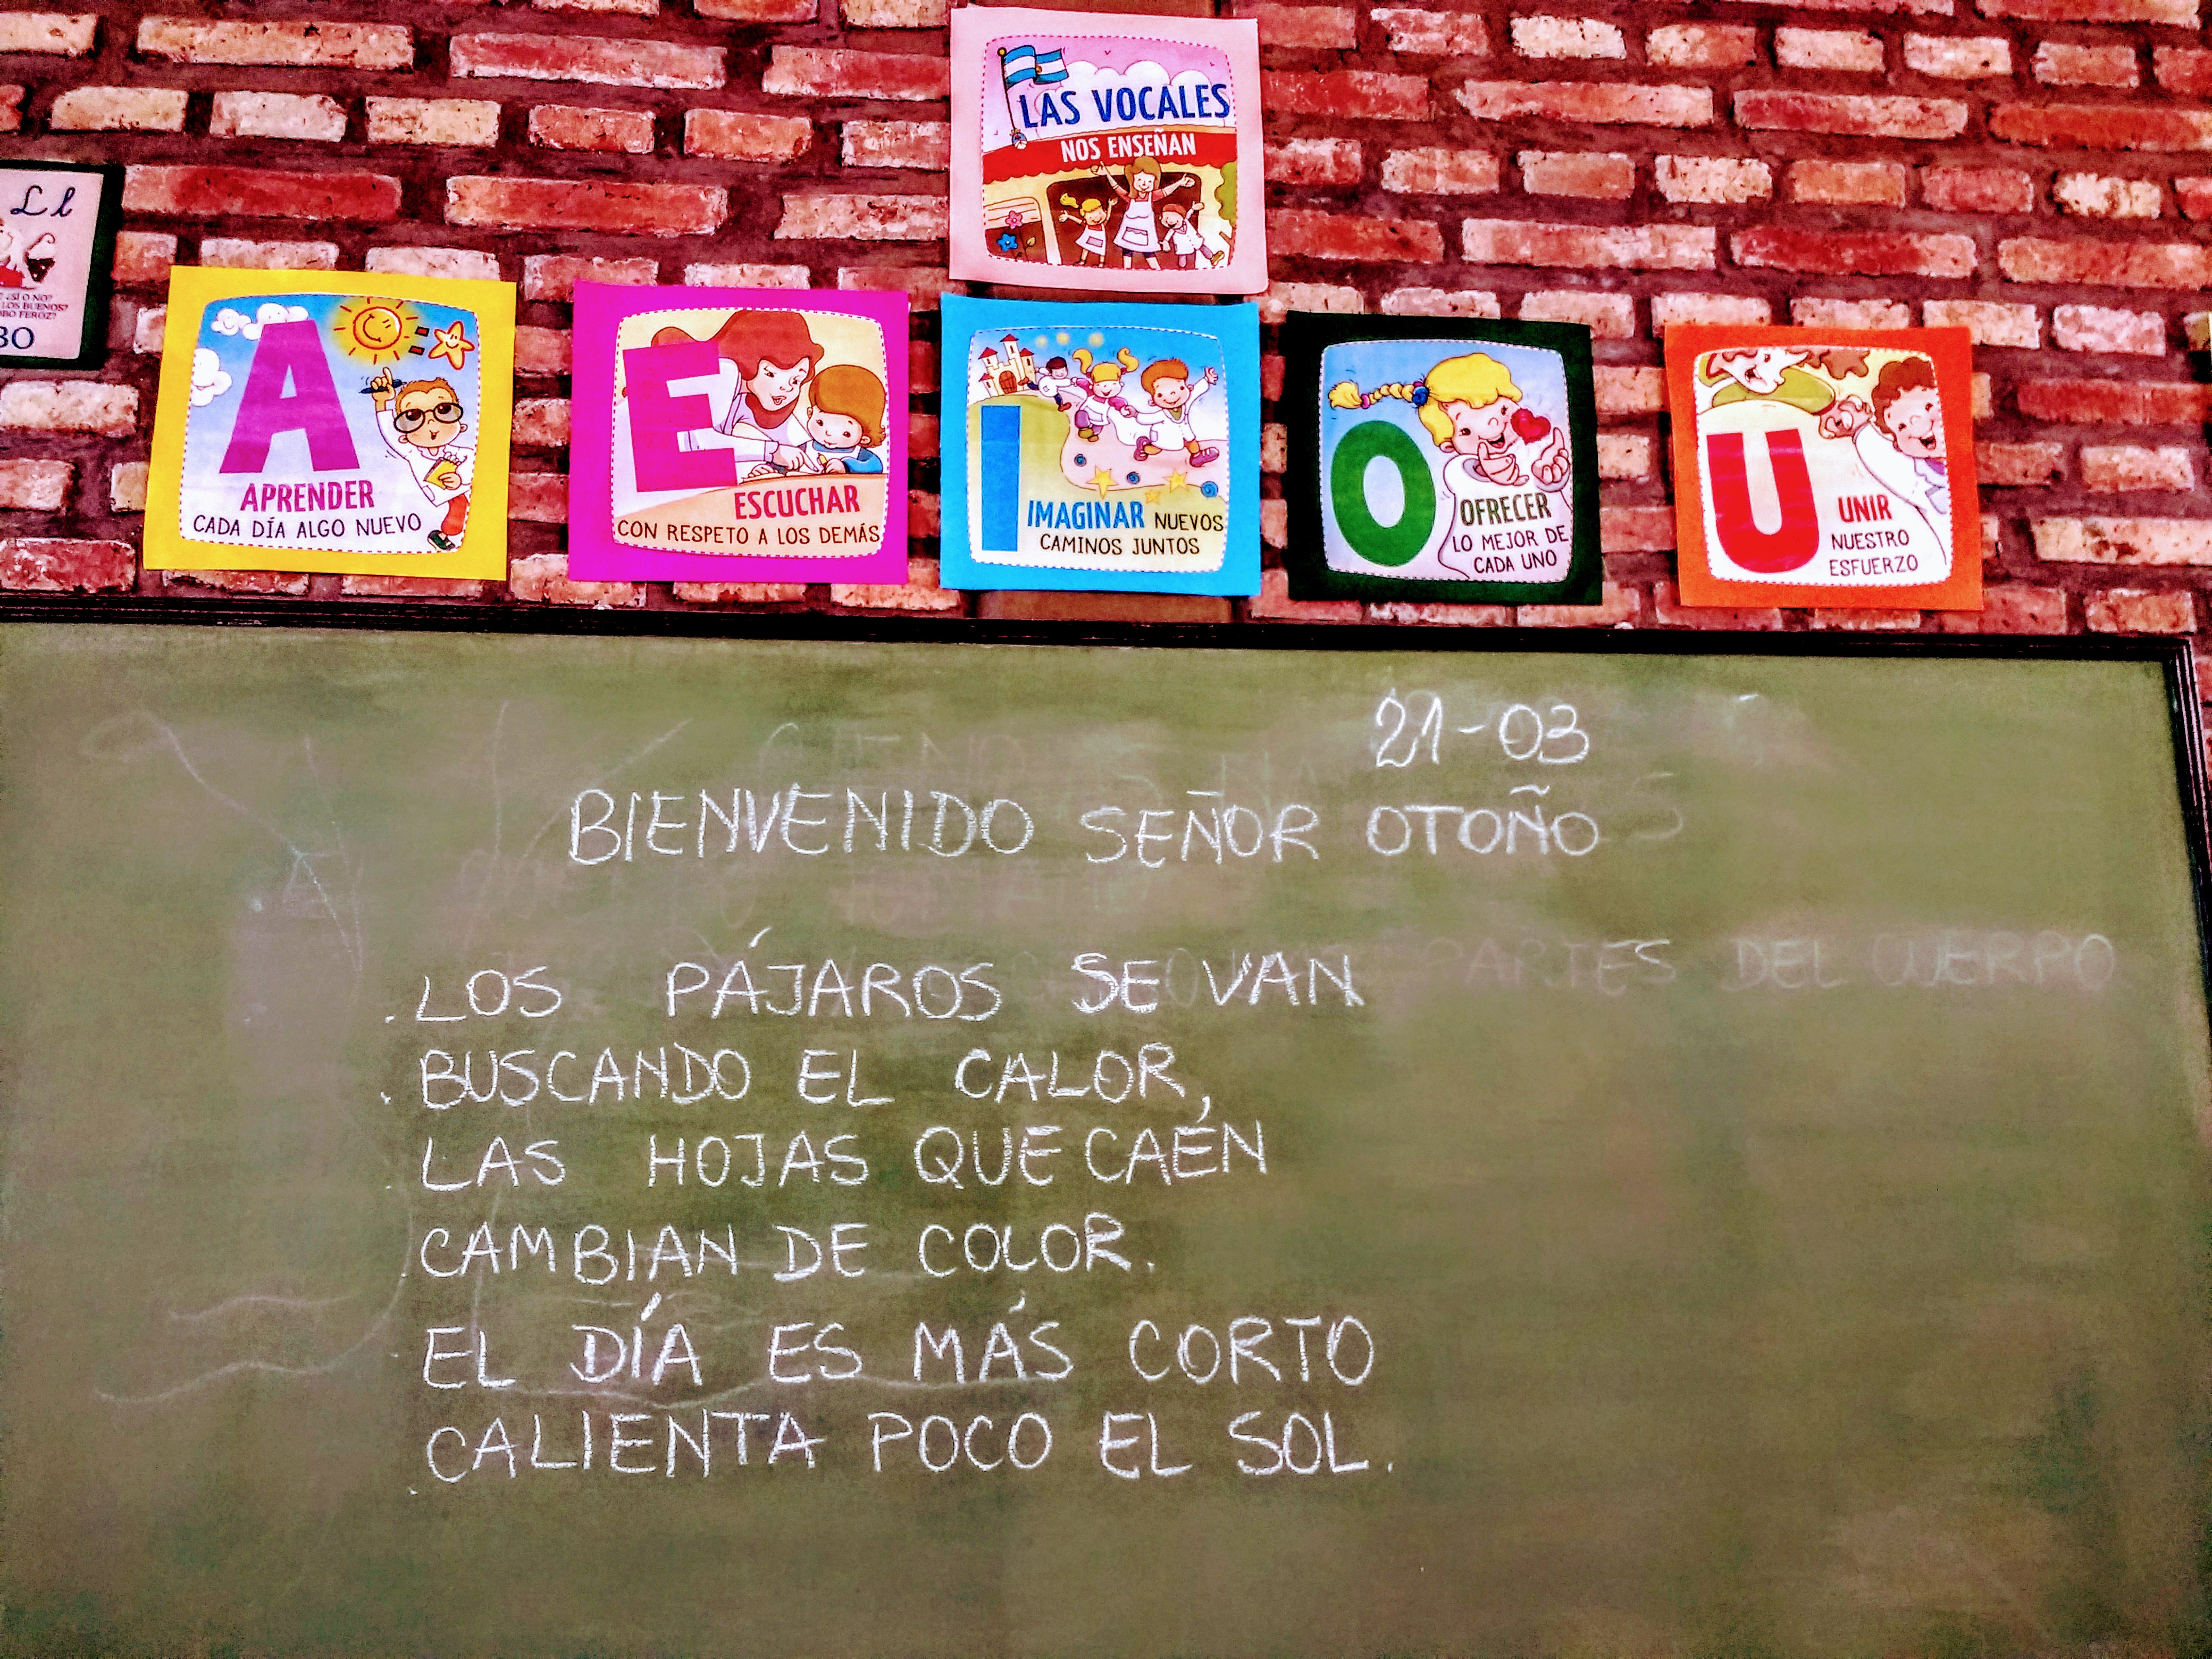 LAS VOCALES
NOS ENSEÑAN
Ll
¿SÍ O NO?
LOS BUENOS?
BO FEROZ?
BO
A
APRENDER
CADA DÍA ALGO NUEVO
E
ESCUCHAR
CON RESPETO A LOS DEMÁS
I
IMAGINAR NUEVOS
CAMINOS JUNTOS
O
OFRECER
LO MEJOR DE
CADA UNO
U
UNIR
NUESTRO
ESFUERZO
21-03
BIENVENIDO SEÑOR OTOÑO
.LOS PÁJAROS SE VAN
PARTES DEL CUERPO
.BUSCANDO EL CALOR,
.LAS HOJAS QUE CAÉN
.CAMBIAN DE COLOR.
.EL DÍA ES MÁS CORTO
.CALIENTA POCO EL SOL.